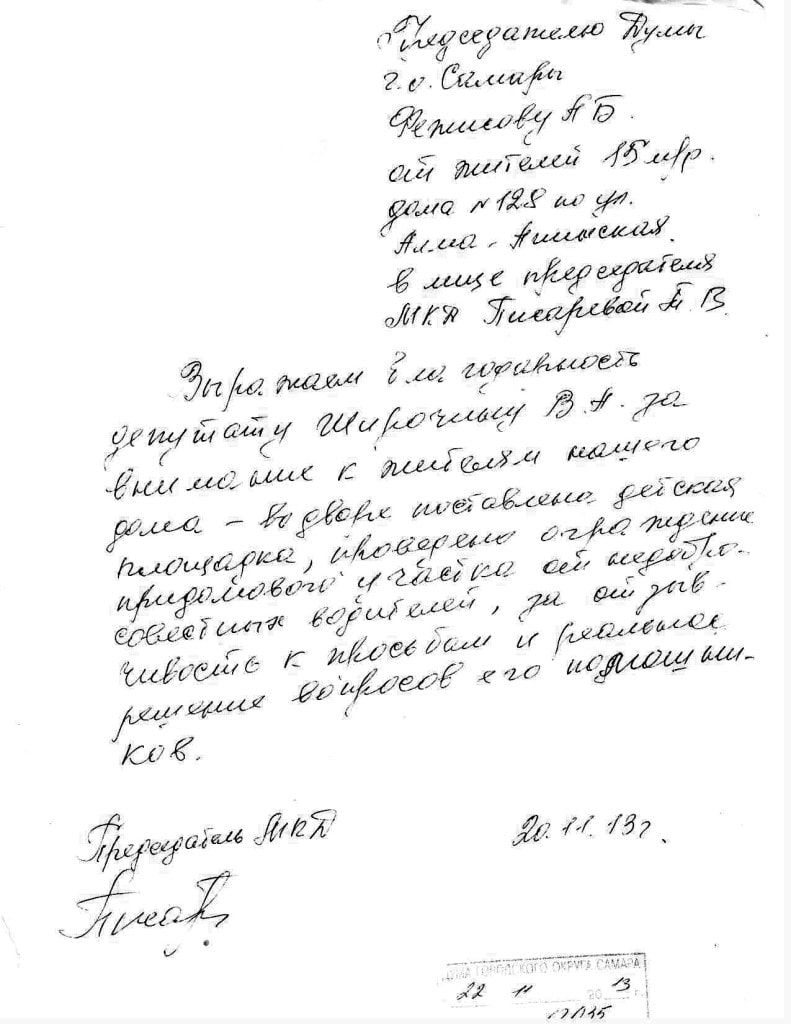 Председателю Думы
г.о. Самары
Фетисову А Б.
от жителей 15 мкр.
дома №128 по ул.
Алма-Атинская.
в лице председателя
МКД Писаревой Т. В.
Выражаем благодарность
депутату Широчину В А. за
внимание к жителям нашего
дома – во дворе поставлена детская
площадка, проведено ограждение
придомового участка от недобро-
совестных водителей, за отзыв-
чивость к просьбам и реальное
решение вопросов его помощни-
ков.
Председатель МКД
20.11.13г.
ДУМА ГОРОДСКОГО ОКРУГА САМАРА
22 11 2013 г.